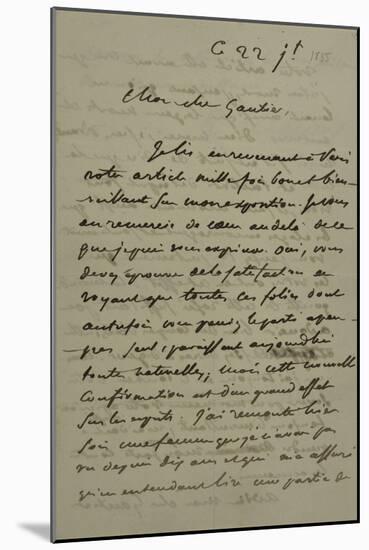 Ce 22 jt 1855
Mon cher Gautier,
Je lis en revenant à Paris
votre article mille fois bon et bien-
veillant sur mon exposition. Je vous
en remercie de cœur au delà de ce
que je puis vous exprimer. Oui, vous
devez éprouver de la satisfaction en
voyant que toutes ces folies dont
autrefois vous preniez le parti à peu
près seul, paraissent aujourd'hui
toutes naturelles; mais cette nouvelle
confirmation est d'un grand effet
sur les esprits. J'ai rencontré hier
soir une femme que je n'avais pas
vu depuis dix ans et qui m'a assuré
qu'en entendant lire une partie de